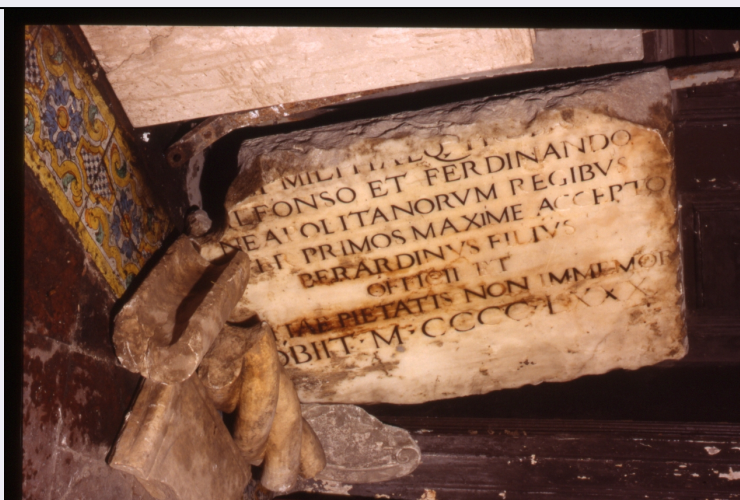 ALFONSO ET FERDINANDO
NEAPOLITANORVM REGIBVS
PRIMOS MAXIME ACCEPTO
BERARDINVS FILIVS
OFFICII ET
PIETATIS NON IMMEMOR
OBIIT · M · CCCC · LXXX